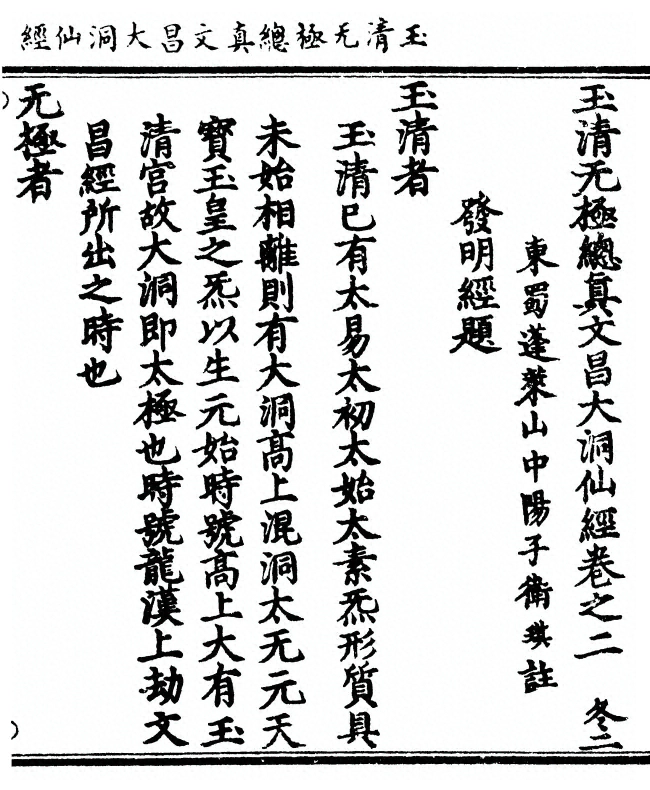 玉清无極總真文昌大洞仙經
玉清无極總真文昌大洞仙經卷之二 冬二
東蜀蓬萊山中陽子衛琪註
發明經題
玉清者
玉清已有太易太初太始太素炁形質具
未始相離則有大洞高上混洞太无元天
寶玉皇之炁以生元始時號高上大有玉
清宮故大洞即太極也時號龍漢上劫文
昌經所出之時也
无極者